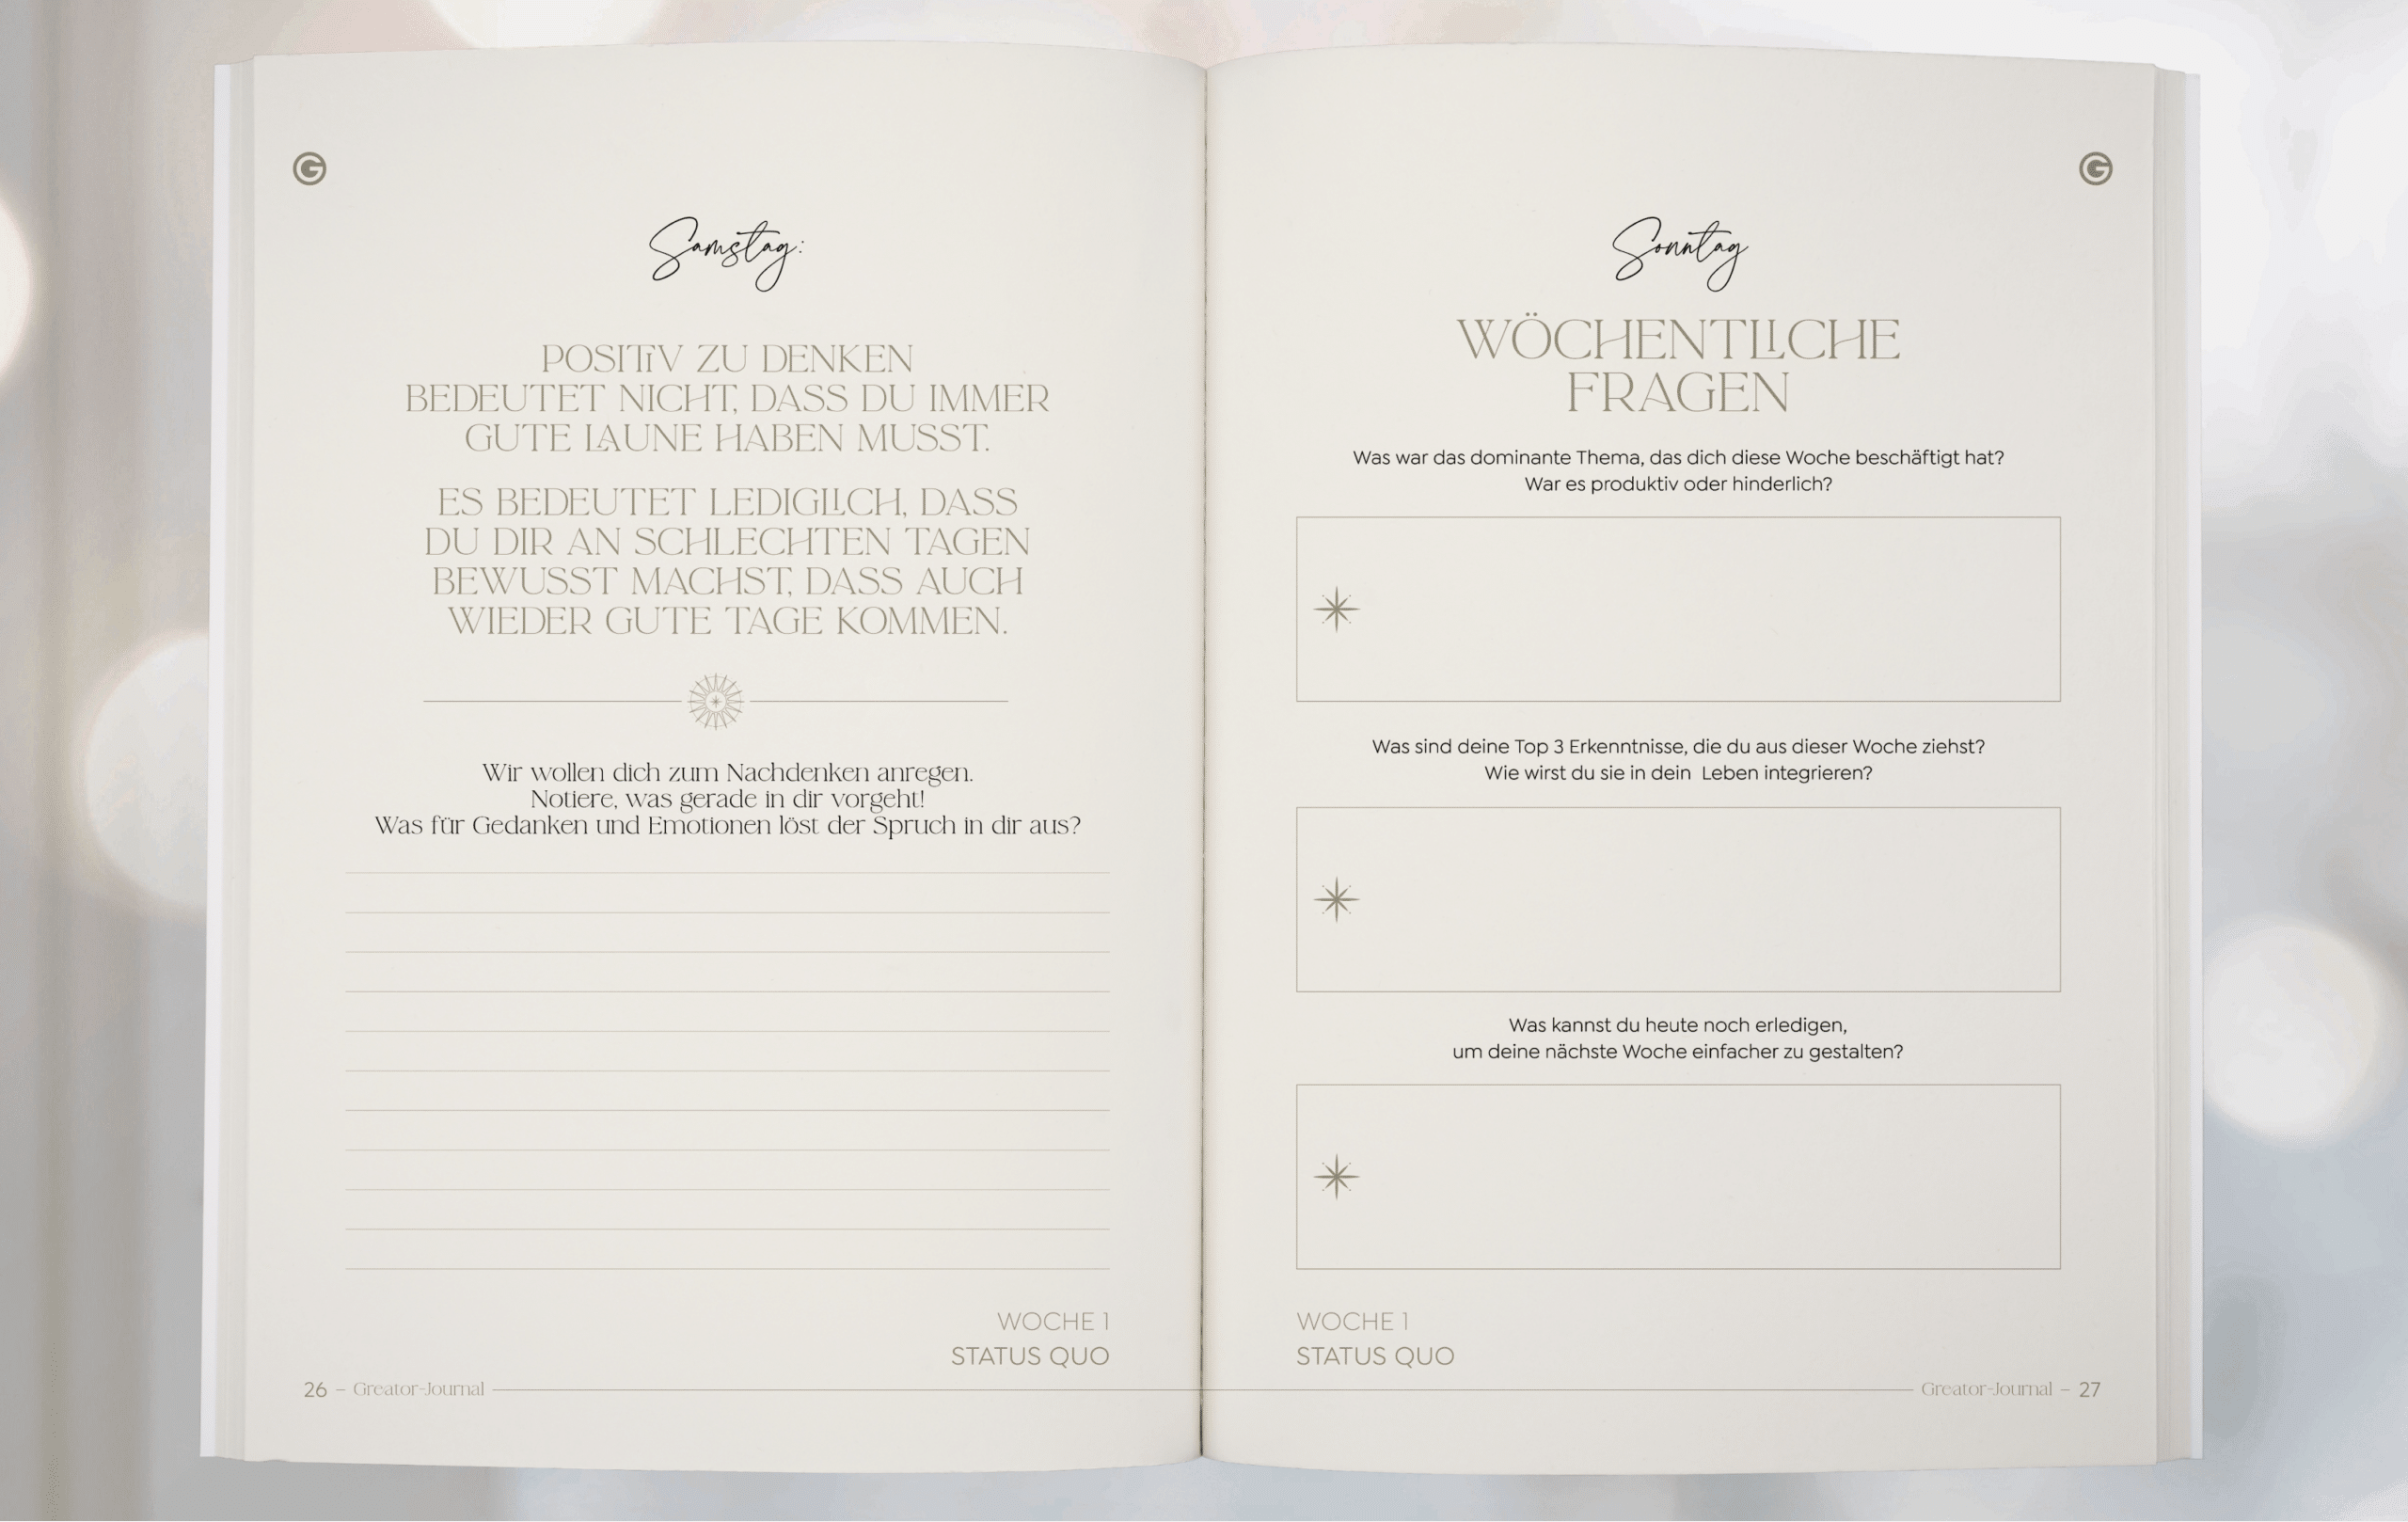 G
Samstag:
POSITIV ZU DENKEN
BEDEUTET NICHT, DASS DU IMMER
GUTE LAUNE HABEN MUSST.
ES BEDEUTET LEDIGLICH, DASS
DU DIR AN SCHLECHTEN TAGEN
BEWUSST MACHST, DASS AUCH
WIEDER GUTE TAGE KOMMEN.
Wir wollen dich zum Nachdenken anregen.
Notiere, was gerade in dir vorgeht!
Was für Gedanken und Emotionen löst der Spruch in dir aus?
WOCHE 1
STATUS QUO
26 – Greator-Journal
G
Sonntag
WÖCHENTLICHE
FRAGEN
Was war das dominante Thema, das dich diese Woche beschäftigt hat?
War es produktiv oder hinderlich?
Was sind deine Top 3 Erkenntnisse, die du aus dieser Woche ziehst?
Wie wirst du sie in dein Leben integrieren?
Was kannst du heute noch erledigen,
um deine nächste Woche einfacher zu gestalten?
WOCHE 1
STATUS QUO
Greator-Journal – 27